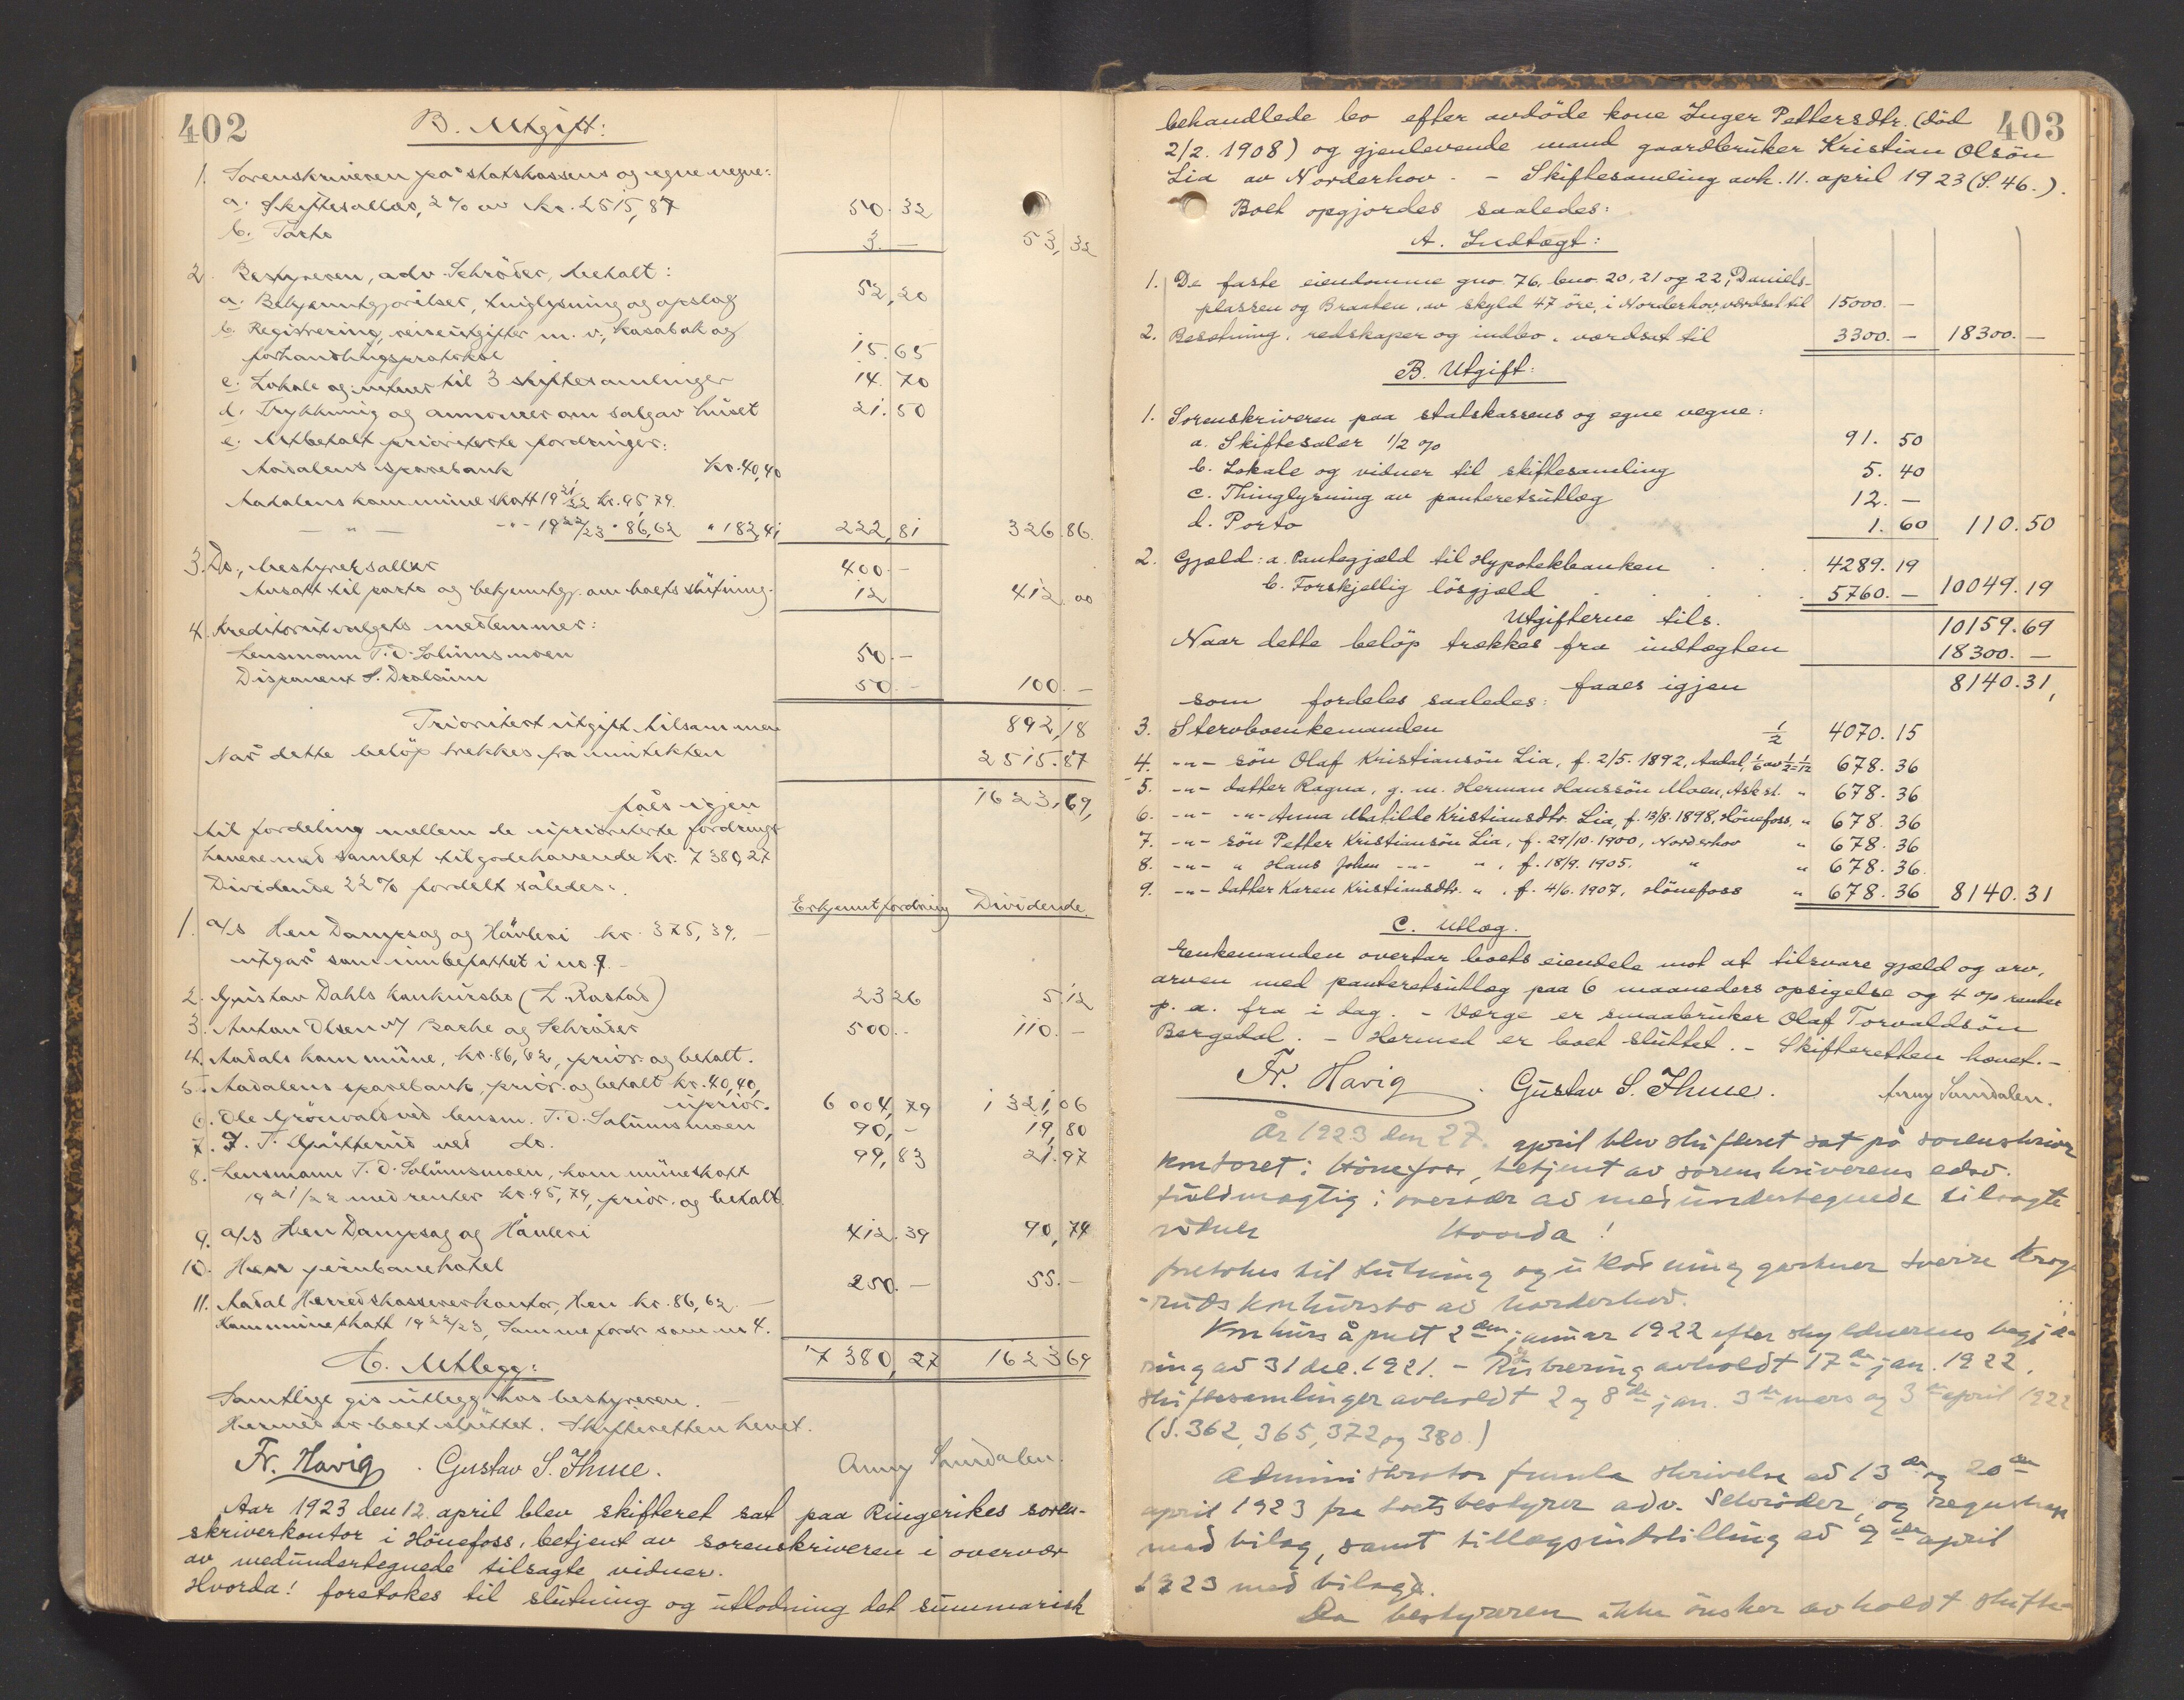 402
B. Utgift:
1. Sorenskriveren på statskassens og egne vegne:
a. Skiftesallær, 2% av kr. 2515,87 50.32
b. Porto 3.— 53,32
2. Bestyreren, adv. Schrøder, betalt:
a. Bekjenntgjørelser, tinglysning og opslag 52,20
b. Registrering, reiseutgifter m. v., kassabok og
forhandlingsprotokol 15.65
c. Lokale og vidner til 3 skiftesamlinger 14.70
d. Trykkning og annonser om salg av huset 21.50
e. Utbetalt prioriterte fordringer:
Aadalens sparebank kr. 40,40
Aadalens kommuneskatt 1921/22 kr. 95,79.
— " — -"- 1922/23 " 86,62 " 182,41 222,81 326.86.
3. Do., bestyrersallær 400.—
Ansatt til porto og bekjenntgj. om boets slutning. 12 412.00
4. Kreditorutvalgets medlemmer:
Lensmann T. O. Solumsmoen 50.—
Disponent S. Drolsum 50.— 100.—
Prioritert utgift tilsammen 892,18
Når dette beløp trekkes fra inntekten 2515.87
fåes igjen 1623,69,
til fordeling mellem de uprioriterte fordrings-
havere med samlet tilgodehavende kr. 7380,27
Dividende 22% fordelt således:
Erkjennt fordring Dividende.
1. A/S Hen Dampsag og Høvleri kr. 375,39. —
utgår som innbefattet i no. 9.—
2. Gustav Dahls konkursbo (L. Rastad) 23 26 5,12
3. Anton Olsen v/ Bache og Schrøder 500.— 110.—
4. Aadals kommune, kr. 86,62, prior. og betalt.
5. Aadalens sparebank, prior. og betalt kr. 40,40,
uprior. 6 004,79 1 321,06
6. Ole Grönvold ved lensm. T. O. Solumsmoen 90,— 19,80
7. J. T. Guttterud ved do. 99,83 21.97
8. Lensmann T. O. Solumsmoen, kommuneskatt
1921/22 med renter kr. 95,79, prior. og betalt
9. A/S Hen Dampsag og Høvleri 412.39 90,74
10. Hen jernbanehotel 250.— 55.—
11. Aadal Herredskassererkontor, Hen kr. 86,62. —
Kommuneskatt 1922/23, Samme fordr. som no 4.
7 380,27 162369
C. Utlegg:
Samtlige gis utlegg hos bestyreren. —
Hermed er boet sluttet. Skifteretten hevet.
Fr. Havig . Gustav S. Thue. Anny Sundalen.
Aar 1923 den 12. april blev skifteret sat paa Ringerikes soren-
skriverkontor i Hönefoss, betjent av sorenskriveren i overvær
av medundertegnede tilsagte vidner.
Hvorda! foretokes til slutning og utlodning det summarisk
403
behandlede bo efter avdöde kone Inger Pettersdtr. (död
2/2. 1908) og gjenlevende mand gaardbruker Kristian Olsön
Lia av Norderhov. — Skiftesamling avh. 11. april 1923 (S. 46.).
Boet opgjordes saaledes:
A. Indtægt:
1. De faste eiendomme gno. 76, bno. 20, 21 og 22, Daniels-
plassen og Braaten, av skyld 47 öre, i Norderhov, værdsat til 15000.—
2. Besætning, redskaper og indbo, værdsat til 3300.— 18300.—
B. Utgift:
1. Sorenskriveren paa statskassens og egne vegne:
a. Skiftesalær 1/2 % 91.50
b. Lokale og vidner til skiftesamling 5.40
c. Thinglysning av panteretsutlæg 12.—
d. Porto 1.60 110.50
2. Gjæld: a. Pantegjæld til Hypotekbanken . . . 4289.19
b. Forskjellig lösgjæld . . . . 5760.— 10049.19
Utgifterne tils. 10159.69
Naar dette belöp trækkes fra indtægten 18300.—
faaes igjen 8140.31,
som fordeles saaledes:
3. Stervboenkemanden 1/2 4070.15
4. -"- sön Olaf Kristiansön Lia, f. 2/5. 1892, Aadal, 1/6 av 1/2=1/12 678.36
5. -"- datter Ragna, g. m. Herman Hanssön Moen, Ask st. " 678.36
6. -"- -"- Anna Matilde Kristiansdtr. Lia, f. 13/8. 1898, Hönefoss. " 678.36
7. -"- sön Petter Kristiansön Lia, f. 29/10. 1900, Norderhov " 678.36
8. -"- " Hans Johan -"- ", f. 18/9. 1905. " " 678.36.
9. -"- datter Karen Kristiansdtr. ", f. 4/6. 1907, Hönefoss " 678.36 8140.31
C. Utlæg.
Enkemanden overtar boets eiendele mot at tilsvare gjæld og arv,
arven med panteretsutlæg paa 6 maaneders opsigelse og 4 % renter
p. a. fra i dag. — Værge er smaabruker Olaf Torvaldsön
Bergedal. — Hermed er boet sluttet. — Skifteretten hævet. —
Fr. Havig . Gustav S. Thue. Anny Sundalen.
År 1923 den 27. april blev skifteret sat på sorenskriver
kontoret i Hönefoss, betjent av sorenskriverens edsv.
fuldmægtig i overvær av medundertegnede tilsagte
vidner Hvorda!
foretokes til slutning og utlodning gartner Sverre Krog-
ruds konkursbo av Norderhov.
Konkurs åpnet 2den januar 1922 efter skyldnerens begjæ-
ring av 31 des. 1921. — Registrering avholdt 17de jan. 1922,
skiftesamlinger avholdt 2 og 8de jan. 3de mars og 3de april 1922
(S. 362, 365, 372 og 380.)
Administrator fremla skrivelse av 13de og 20de
april 1923 fra boets bestyrer adv. Schrøder, og regnskap
med bilag, samt tillægsindstilling av 9de april
1923 med bilage.
Da bestyreren ikke ønsker avholdt skifte-